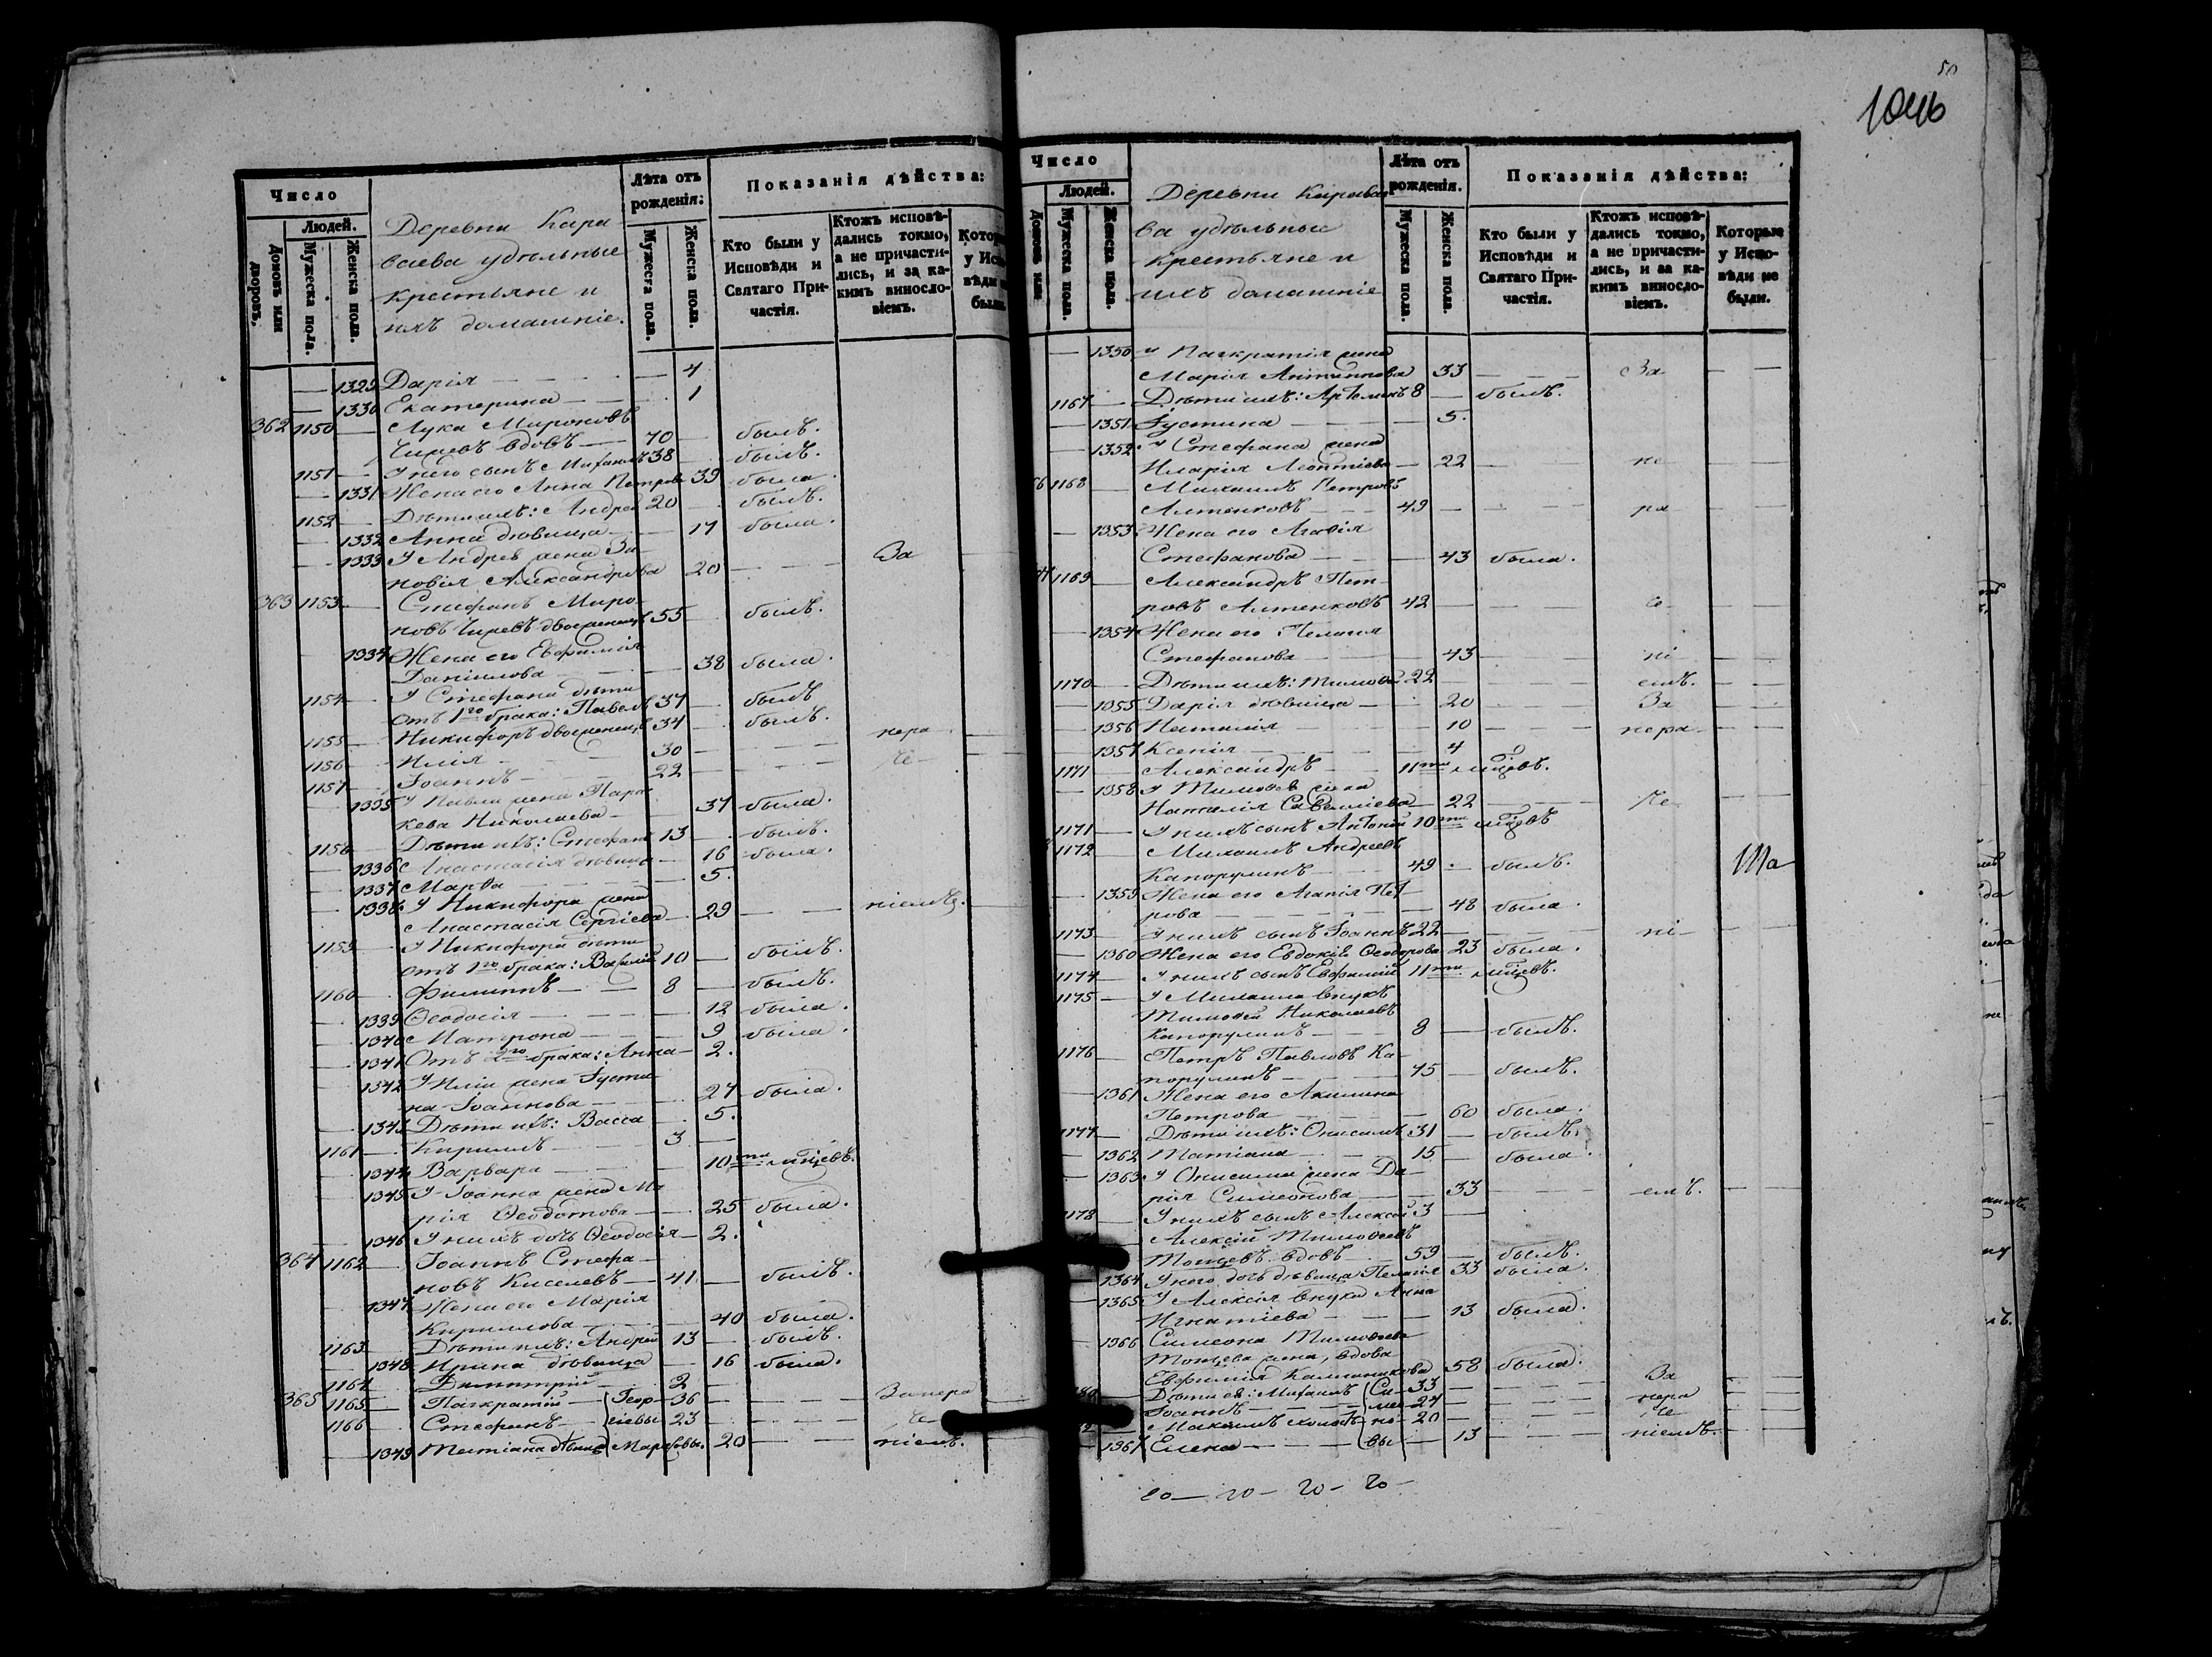 Число
Людей.
Домовъ или дворовъ.
Мужеска пола.
Женска пола.
Деревни Кара
ваева удѣльные
крестьяне и
ихъ домашніе.
Лѣта отъ рожденія:
Мужеска пола.
Женска пола.
Показанія дѣйства:
Кто были у Исповѣди и Святаго Причастія.
Ктожъ исповѣдались токмо, а не причастились, и за какимъ винословіемъ.
1329 Дарія — 4
1330 Екатерина — 1
362 1150 Лука Мироновъ
вдовъ — 70 — былъ.
1151 У него сынъ Михаилъ 38 былъ.
1331 Жена его Анна Петрова 39 была.
1152 Дѣти ихъ: Андрей 20 былъ.
1332 Анна дѣвица — 17 была.
1333 У Андрея жена Зи-
новія Александрова 20 — За
363 1153 Стефанъ Миро-
новъ двоеженецъ 55 былъ.
1334 Жена его Евфимія
Даніилова — 38 была.
1154 У Стефана дѣти
отъ 1го брака: Павелъ 37 былъ
1155 Никифоръ двоеженецъ 34 былъ.
1156 Илія — 30 — нера
1157 Іоаннъ — 22 — че
1335 У Павла жена Параc
кева Николаева — 37 была.
1158 Дѣти ихъ: Стефанъ 13 былъ.
1336 Анастасія дѣвица — 16 была.
1337 Марѳа — 5.
1338 У Никифора жена
Анастасія Сергіева — 29 — ніемъ.
1159 У Никифора дѣти
отъ 1го брака: Василій 10 — былъ.
1160 Филиппъ — 8 — былъ.
1339 Ѳеодосія — 12 была.
1340 Матрона — 9 была.
1341 Отъ 2го брака: Анна — 2.
1342 У Иліи жена Іусти
на Іоаннова — 27 была.
1343 Дѣти ихъ: Васса — 5.
1161 Кириллъ — 3 —
1344 Варвара — 10ти мѣсцевъ.
1345 У Іоанна жена Ма
рія Ѳеодотова — 25 была.
1346 У нихъ дочь Ѳеодосія — 2.
364 1162 Іоаннъ Стефа-
новъ Киселевъ — 41 — былъ.
1347 Жена его Марія
Кириллова — 40 была.
1163 Дѣти ихъ: Андрей 13 — былъ.
1348 Ирина дѣвица — 16 была.
1164 Димитрій — 2 —
365 1165 Панкратій — Геор 36 — Занера
1166 Стефанъ — гіевы 23 — че
1349 Татіана дѣвица 20 — ніемъ.
50
1046
Число
Людей.
Домовъ или
Мужеска пола.
Женска пола.
Деревни Карава
ва удѣльные
крестьяне и
ихъ домашніе
Лѣта отъ рожденія.
Мужеска пола.
Женска пола.
Показанія дѣйства:
Кто были у Исповѣди и Святаго Причастія.
Ктожъ исповѣдались токмо, а не причастились, и за какимъ винословіемъ.
Которые у Исповѣди не были.
1350 у Панкратія жена
Марія Антипова 33 — За
1167 Дѣти ихъ: 8 — былъ.
1351 Іустина — 5.
1352 У Стефана жена
Иларія Леонтіева — 22 — не
1168 Михаилъ Петровъ
Алтенковъ — 49 — ра
1353 Жена его Агаѳія
Стефанова — 43 была.
1169 Александръ Пет-
ровъ Алтенковъ 42 — че
1354 Жена его Пелагія
Стефанова — 43 — ні
1170 Дѣти ихъ: Тимоѳей 22 — емъ.
1355 Дарія дѣвица — 20 — За
1356 Наталія — 10 — нера
1357 Ксенія — 4
1171 Александръ — 11ти мѣсцевъ.
1358 У Тимоѳея жена
Наталія Савеліева — 22 — че
1171 У нихъ сынъ Антоній 10ти мѣсцевъ
1172 Михаилъ Андреевъ
Капорулинъ — 49 — былъ.
1359 Жена его Агапія Пет-
рова — 48 была.
1173 У нихъ сынъ Іоаннъ 22 — ні
1360 Жена его Евдокія Ѳеодорова 23 была.
1174 У нихъ сынъ Евфимій 11ти мѣсцевъ.
1175 У Михаила внукъ
Тимоѳей Николаевъ
Капорулинъ — 8 — былъ.
1176 Петръ Павловъ Ка-
порулинъ — 75 — былъ.
1361 Жена его Акилина
Петрова — 60 была.
1177 Дѣти ихъ: Онисимъ 31 — былъ.
1362 Татіана — 15 — была.
1363 У Онисима жена Да-
рія Симеонова — 33 — емъ.
1178 У нихъ сынъ Алексій 3 —
Алексій Тимоѳеевъ
вдовъ — 59 — былъ.
1364 У него дочь дѣвица Пелагія 33 была.
1365 У Алексія внука Анна
Игнатіева — 13 была.
1366 Симеона Тимоѳеева
жена, вдова
Евфимія Калинникова 58 была.
Дѣти ея: Михаилъ Си- 33 — За
Іоаннъ — ме- 24 — нера
Максимъ холостъ но- 20 — че
1367 Елена — вы — 13 — ніемъ.
20 — 20 — 20 — 20 —